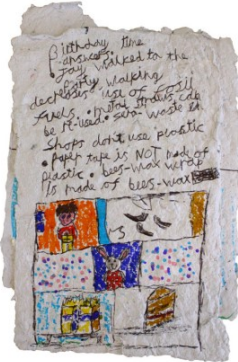 Birthday time
answers:
Jay walked to the
Party walking
decreases use of fossil
fuels. • metal straws can
be re-used. • waste
Shops don't use plastic
• paper tape is NOT made of
plastic • bees-wax wrap
is made of bees-wax